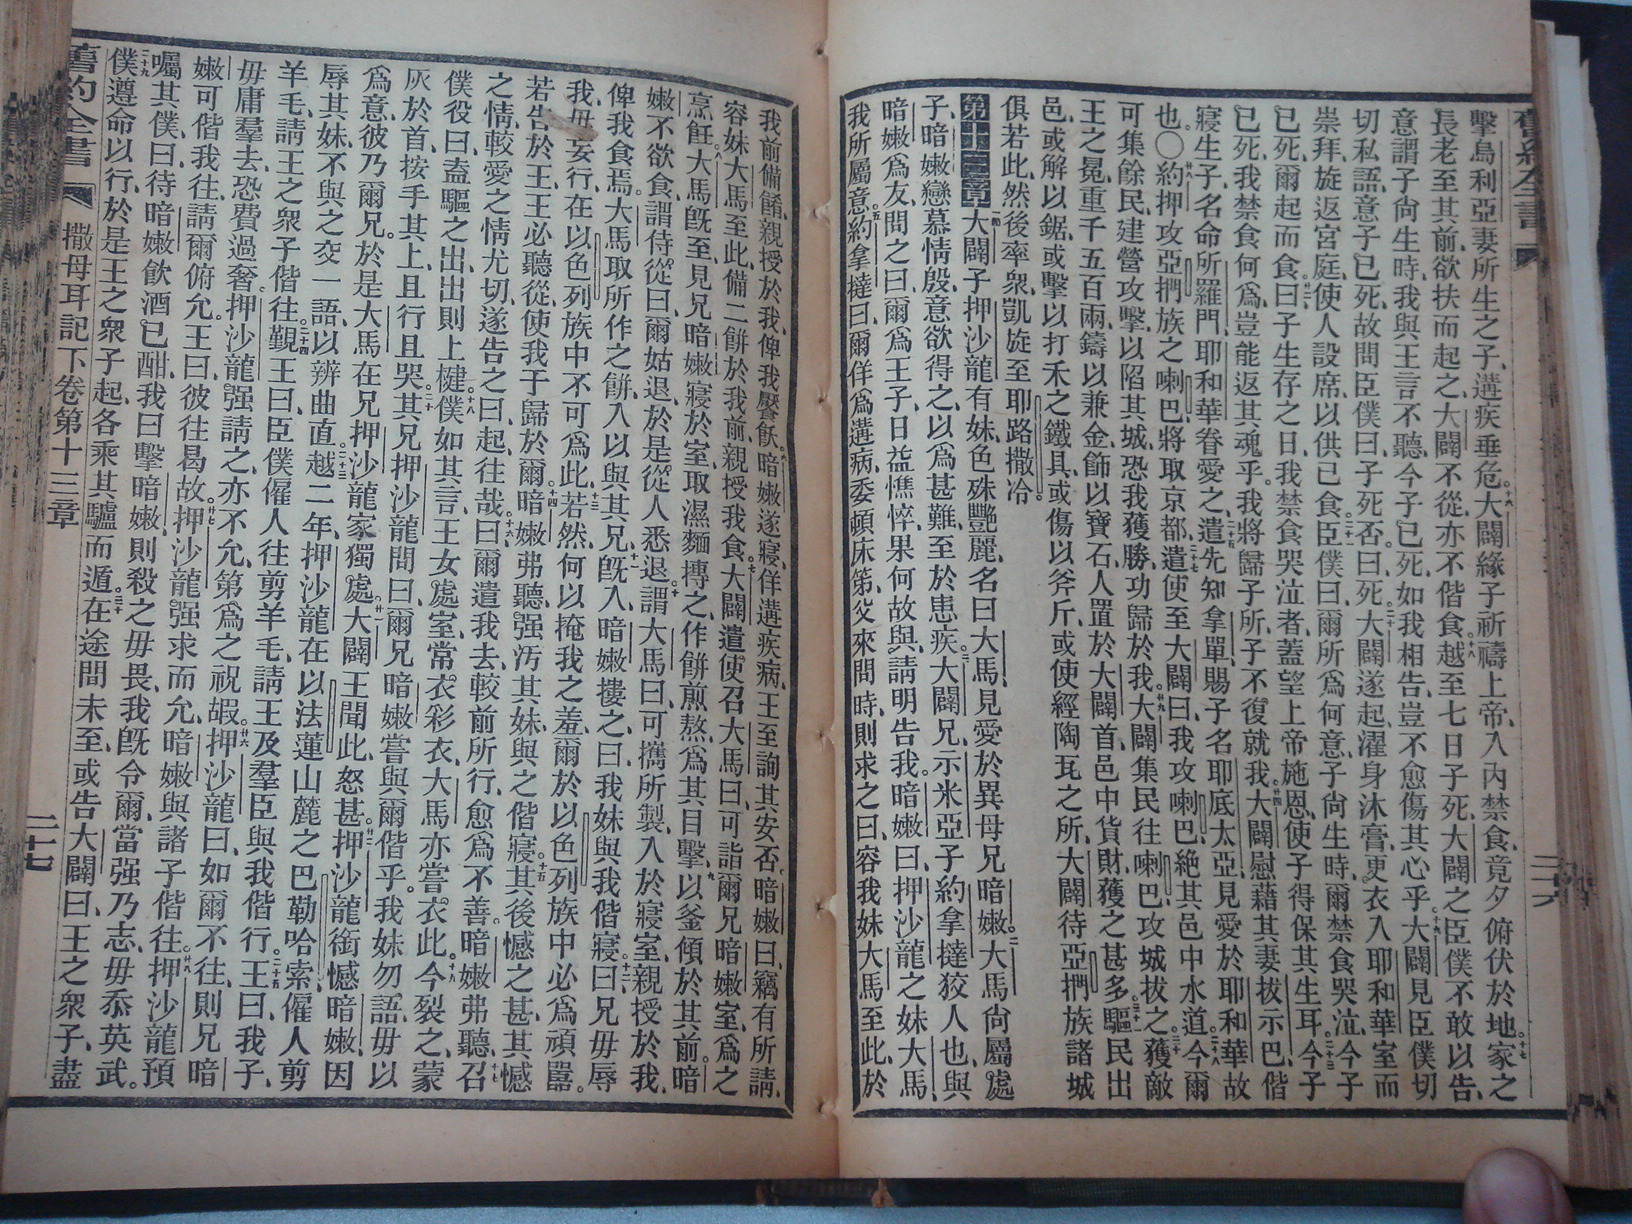 擊鳥利亞妻所生之子、遘疾垂危。大闢緣子祈禱上帝、入內禁食、竟夕俯伏於地。家之
長老至其前、欲扶而起之、大闢不從、亦不偕食。越至七日子死、大闢之臣僕不敢以告、
意謂子尚生時、我與王言不聽、今子已死、如我相告、豈不愈傷其心乎。大闢見臣僕切
切私語、意子已死、故問臣僕曰、子死否、曰死。大闢遂起、濯身沐膏、更衣入耶和華室而
崇拜、旋返宮庭、使人設席、以供己食。臣僕曰、爾所爲何意、子尚生時、爾禁食哭泣、今子
已死、爾起而食。曰、子生存之日、我禁食哭泣者、蓋望上帝施恩、使子得保其生耳。今子
已死、我禁食何爲、豈能返其魂乎。我將歸子所、子不復就我。大闢慰藉其妻拔示巴、偕
寢生子、名命所羅門、耶和華眷愛之、遣先知拿單、賜子名耶底太亞、見愛於耶和華故
也。○約押攻亞捫族之喇巴、將取京都、遣使至大闢曰、我攻喇巴、絕其邑中水道。今爾
可集餘民、建營攻擊、以陷其城、恐我獲勝、功歸於我。大闢集民往喇巴、攻城拔之、獲敵
王之冕、重千五百兩、鑄以兼金、飾以寶石、人置於大闢首、邑中貨財、獲之甚多。驅民出
邑、或解以鋸、或擊以打禾之鐵具、或傷以斧斤、或使經陶瓦之所、大闢待亞捫族諸城、
俱若此、然後率衆凱旋至耶路撒冷。
第十三章 大闢子押沙龍有妹、色殊艷麗、名曰大馬、見愛於異母兄暗嫩。大馬尚屬處
子、暗嫩戀慕情殷、意欲得之、以爲甚難、至於患疾。大闢兄示米亞子約拿撻狡人也、與
暗嫩爲友、問之曰、爾爲王子、日益憔悴、果何故與、請明告我。暗嫩曰、押沙龍之妹大馬、
我所屬意。約拿撻曰、爾佯爲遘病、委頓床笫、父來問時、則求之曰、容我妹大馬至此、於
我前備餚、親授於我、俾我饜飫。暗嫩遂寢、佯遘疾病、王至詢其安否、暗嫩曰、竊有所請、
容妹大馬至此、備二餅於我前、親授我食。大闢遣使召大馬曰、可詣爾兄暗嫩室、爲之
烹飪。大馬旣至、見兄暗嫩寢於室、取濕麵摶之、作餅煎熬、爲其目擊。以釜傾於其前、暗
嫩不欲食、謂侍從曰、爾姑退、於是從人悉退。謂大馬曰、可攜所製、入於寢室、親授於我、
俾我食焉。大馬取所作之餅、入以與其兄。旣入、暗嫩摟之曰、我妹與我偕寢。曰、兄毋辱
我、毋妄行、在以色列族中不可爲此。若然、何以掩我之羞、爾於以色列族中必爲頑嚚。
若告於王、王必聽從、使我于歸於爾。暗嫩弗聽、强汚其妹、與之偕寢。其後憾之甚、其憾
之情、較愛之之情尤切、遂告之曰、起往哉。曰、爾遣我去、較前所行、愈爲不善。暗嫩弗聽、召
僕役曰、盍驅之出、出則上楗。僕如其言、王女處室、常衣彩衣、大馬亦嘗衣此。今裂之、蒙
灰於首、按手其上、且行且哭。其兄押沙龍問曰、爾兄暗嫩嘗與爾偕乎。我妹勿語、毋以
爲意、彼乃爾兄。於是大馬在兄押沙龍家獨處。大闢王聞此怒甚。押沙龍銜憾暗嫩、因
辱其妹、不與之交一語、以辨曲直。越二年、押沙龍在以法蓮山麓之巴勒哈索、僱人剪
羊毛、請王之衆子偕往。覲王曰、臣僕僱人往剪羊毛、請王及羣臣與我偕行。王曰、我子、
毋庸羣去、恐費過奢。押沙龍强請之、亦不允、第爲之祝嘏。押沙龍曰、如爾不往、則兄暗
嫩可偕我往、請爾俯允。王曰、彼往曷故。押沙龍强求而允、暗嫩與諸子偕往。押沙龍預
囑其僕曰、待暗嫩飲酒已酣、我曰擊暗嫩、則殺之毋畏、我旣令爾、當强乃志、毋忝英武。
僕遵命以行、於是王之衆子起、各乘其驢而遁。在途間未至、或告大闢曰、王之衆子、盡
舊約全書 撒母耳記下卷第十三章 二十七